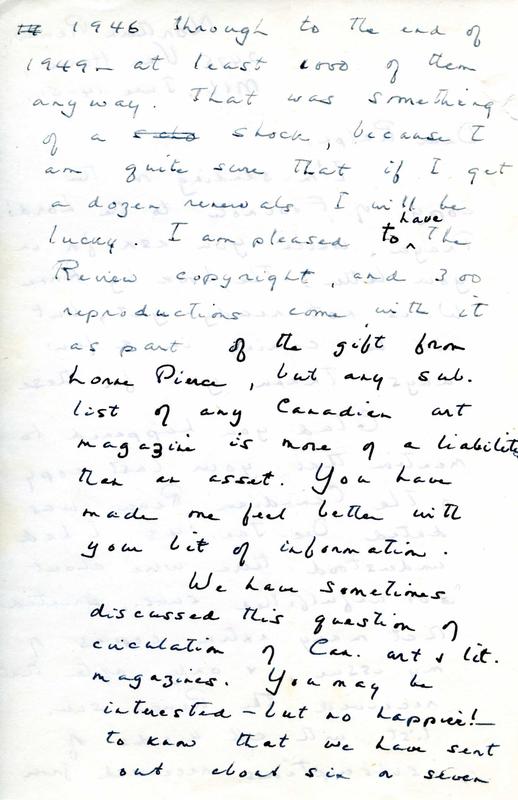 1946 through to the end of
1949 – at least 1000 of them
anyway. That was something
of a shock, because I
am quite sure that if I get
a dozen renewals I will be
lucky. I am pleased to have The
Review copyright, and 300
reproductions come with it
as part of the gift from
Lorne Pierce, but any sub.
list of any Canadian art
magazine is more of a liability
than an asset. You have
made me feel better with
your bit of information.
We have sometimes
discussed this question of
circulation of Can. art & lit.
magazines. You may be
interested – but no happier! –
to know that we have sent
out about six or seven